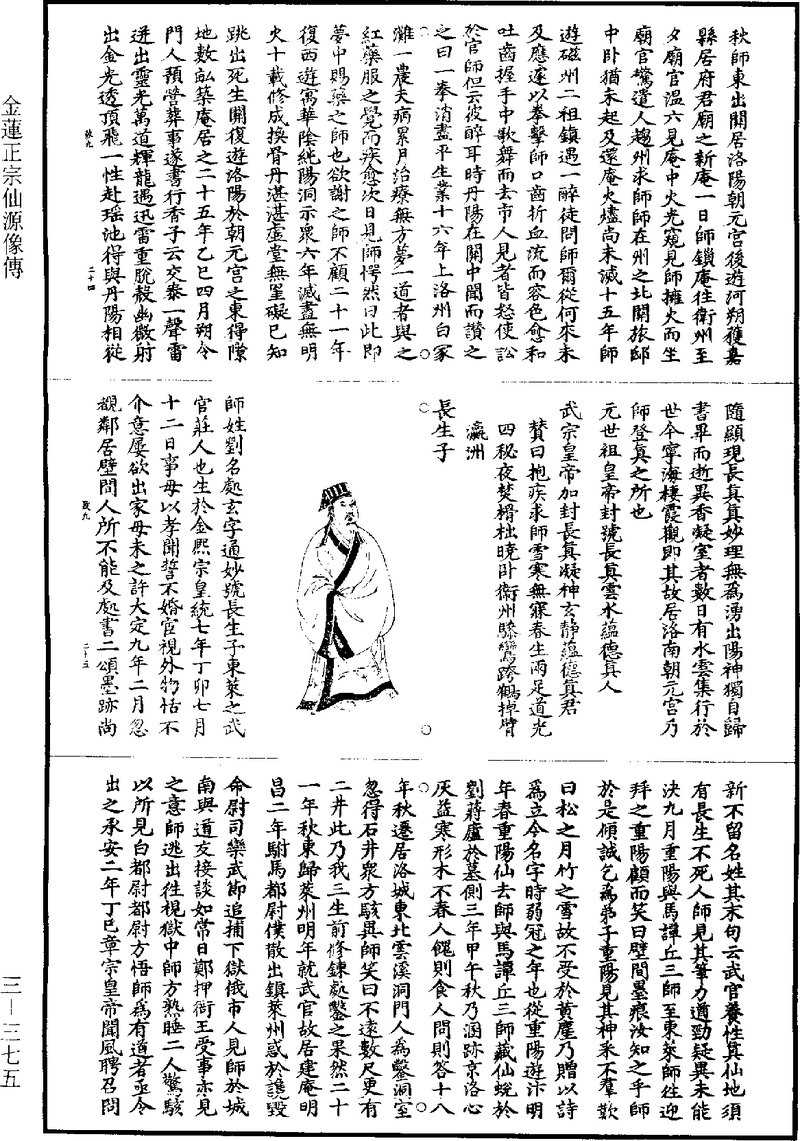 秋師東出關居洛陽朝元宮後遊河朔獲嘉
縣居府君廟之新庵一日師鎖庵往衛州至
夕廟官溫六見庵中火光窺見師擁火而坐
廟官驚遣人趨州求師師在州之北關旅邸
中卧猶未起及還庵火燼尚未滅十五年師
遊磁州二祖鎮遇一醉徒問師爾從何來未
及應遽以拳擊師口齒折血流而容色愈和
吐齒握手中歌舞而去市人見者皆愁使訟
於官師但云彼醉耳時丹陽在關中聞而讚之
之曰一拳消盡平生業十六年上洛州白家
灘一農夫病累月治療無方夢一道者與之
紅藥服之覺而疾愈次日見師愕然曰此即
夢中賜藥之師也欲謝之師不顧二十一年
復西遊寓華陰純陽洞示衆六年滅盡無明
火十載修成換骨丹湛湛虛堂無罣礙已知
跳出死生關復遊洛陽於朝元宮之東得隙
地數畝築庵居之二十五年乙巳四月朔令
門人預營葬事遂書行香子云交泰一聲雷
迸出靈光萬道輝龍遇迅雷重脫殼幽微射
出金光透頂飛一性赴瑤池得與丹陽相從
致九
二十四
隨顯現長真真妙理無為湧出陽神獨自歸
書畢而逝異香凝室者數日有水雲集行於
世今寧海棲霞觀即其故居洛南朝元宮乃
師登真之所也
元世祖皇帝封號長真雲水蘊德真人
武宗皇帝加封長真凝神玄靜蘊德真君
贊曰抱疾求師雪寒無寐春生兩足道光
四秘夜焚榾柮曉卧衛州驂鸞跨鶴掉臂
瀛洲
長生子
師姓劉名處玄字通妙號長生子東萊之武
官莊人也生於金熙宗皇統七年丁卯七月
十二日事母以孝聞誓不婚宦視外物恬不
介意屢欲出家母未之許大定九年二月忽
覩鄰居壁間人所不能及處書二頌墨跡尚
致九
二十五
新不留名姓其末句云武官養性真仙地須
有長生不死人師見其筆力遒勁疑異未能
決九月重陽與馬譚丘三師至東萊師往迎
拜之重陽顧而笑曰壁間墨痕汝知之乎師
於是傾誠乞為弟子重陽見其神釆不羣歎
曰松之月竹之雪故不受於黃塵乃贈以詩
為立今名字時弱冠之年也從重陽遊汴明
年春重陽仙去師與馬譚丘三師藏仙蛻於
劉蔣廬於墓側三年甲午秋乃涵跡京洛心
灰益寒形木不春人餽則食人問則答十八
年秋遷居洛城東北雲溪洞門人為鑿洞室
忽得石井衆方駭異師笑曰不遠數尺更有
二井此乃我三生前修鍊處鑿之果然二十
一年秋東歸萊州明年就武官故居建庵明
昌二年駙馬都尉僕散出鎮萊州惑於讒毀
命尉司欒武節追捕下獄俄市人見師於城
南與道友接談如常日鄭押衙王受事亦見
之意師逃出往視獄中師方熟睡二人驚駭
以所見白都尉都尉方悟師為有道者亟令
出之承安二年丁巳章宗皇帝聞風聘召問
金蓮正宗仙源像傳
三－三七五